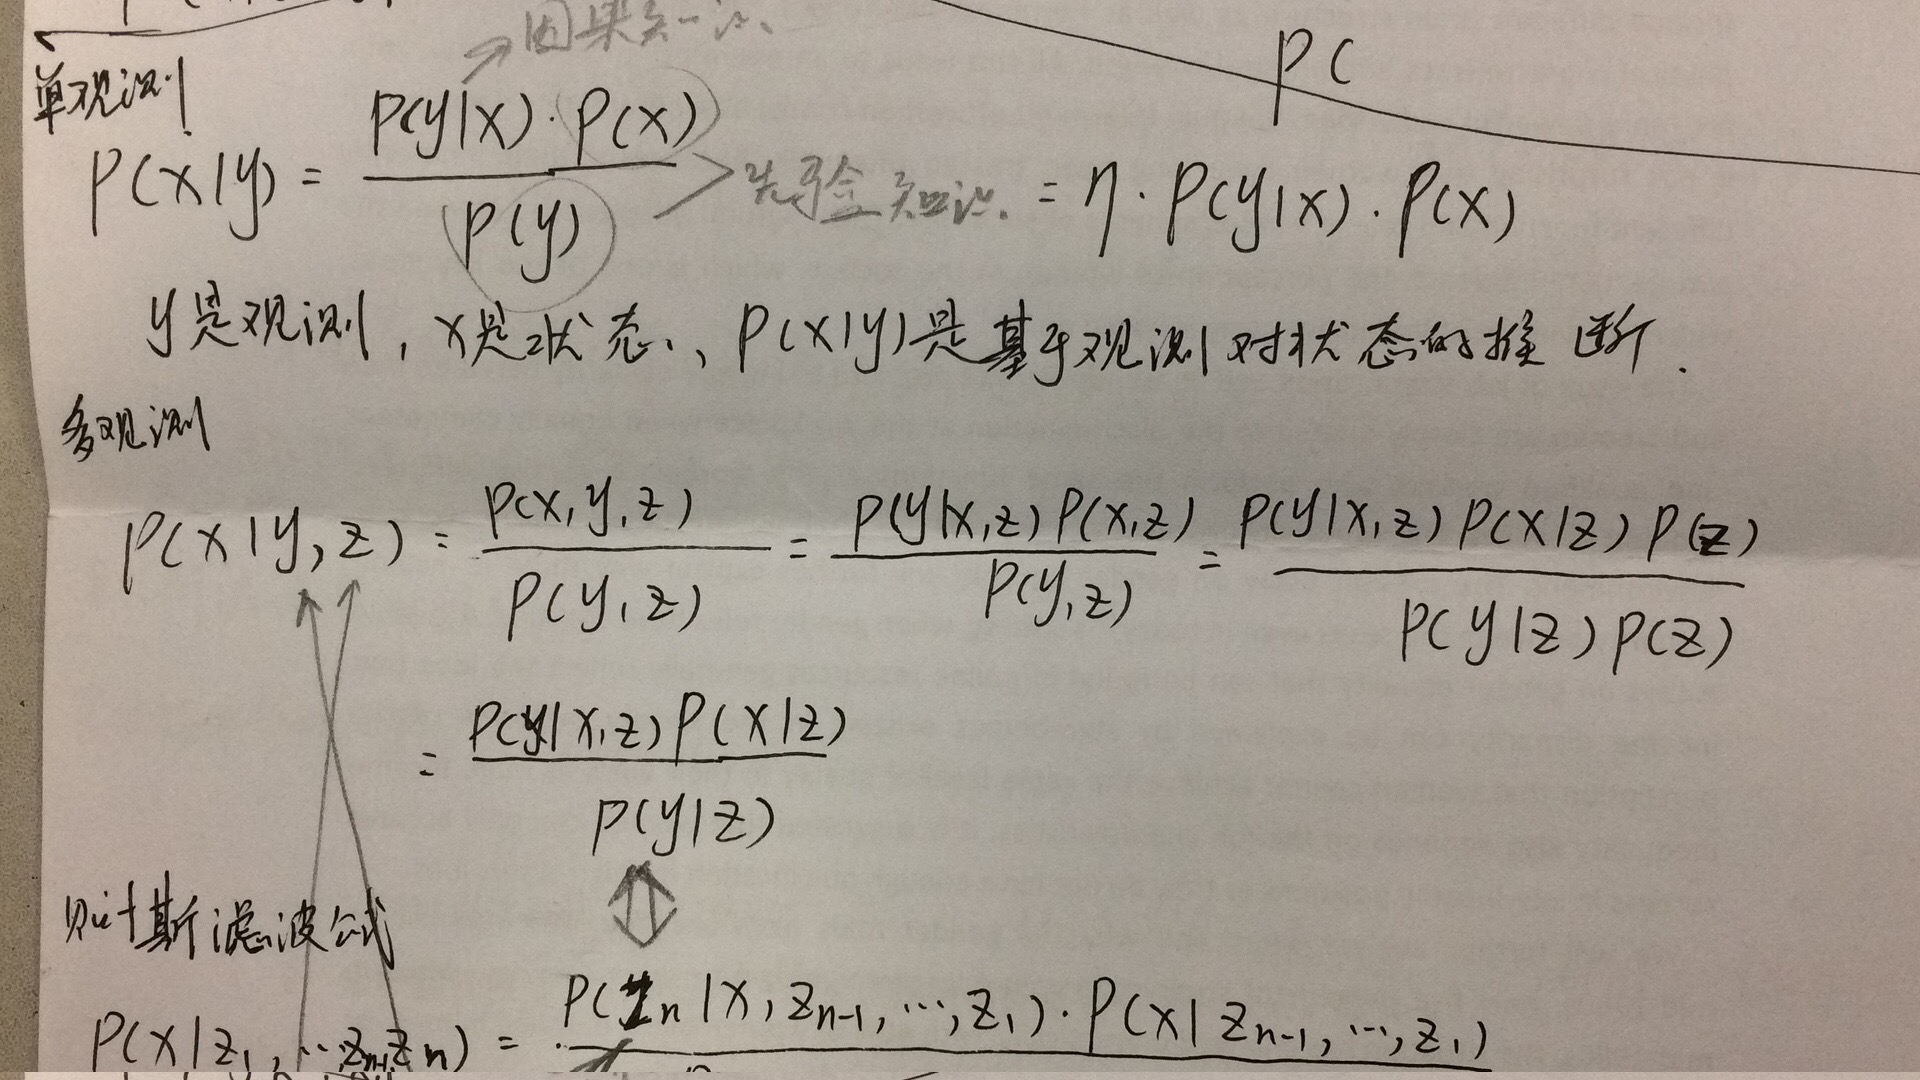 →因果知识
P(
单观测
P(x|y) = P(y|x)·P(x) / P(y) > 先导金知识. = η·P(y|x)·P(x)
y是观测, x是状态、, P(x|y)是基于观测对状态的推断.
多观测
P(x|y,z) = P(x,y,z) / P(y,z) = P(y|x,z)P(x,z) / P(y,z) = P(y|x,z)P(x|z)P(z) / P(y|z)P(z)
= P(y|x,z)P(x|z) / P(y|z)
贝叶斯滤波公式
P(x|z₁,…,zₙ₋₁,zₙ) = P(zₙ|x,zₙ₋₁,…,z₁)·P(x|zₙ₋₁,…,z₁)